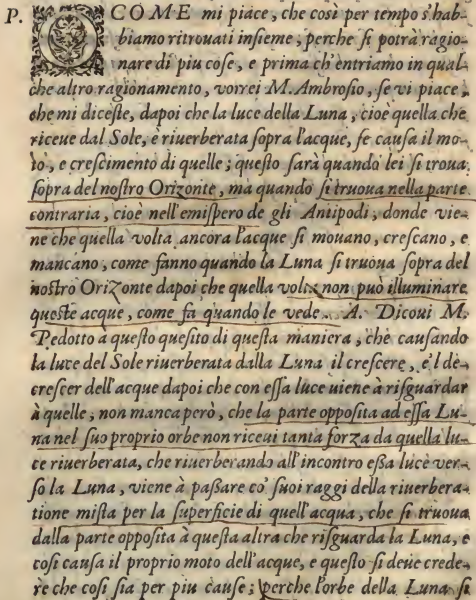 P. O COME mi piace, che così per tempo s'hab-
biamo ritrouati insieme; perche si potrà ragio-
nare di piu cose, e prima ch'entriamo in qual-
che altro ragionamento, vorrei M. Ambrosio, se vi piace,
che mi diceste, dapoi che la luce della Luna, cioè quella che
riceue dal Sole, è riuerberata sopra l'acque, fe causa il mo-
to, e crescimento di quelle; questo sarà quando lei si troua
sopra del nostro Orizonte, ma quando si truoua nella parte
contraria, cioè nell'emispero de gli Antipodi, donde vie-
ne che quella volta ancora l'acque si mouano, crescano, e
mancano, come fanno quando la Luna si truoua sopra del
nostro Orizonte dapoi che quella volta non può illuminare
queste acque, come fa quando le vede. A. Dicoui M.
Pedotto a questo quesito di questa maniera, che causando
la luce del Sole riuerberata dalla Luna il crescere, e'l de-
crescer dell'acque dapoi che con essa luce uiene à risguardar
à quelle; non manca però, che la parte opposita ad essa Lu-
na nel suo proprio orbe non riceui tanta forza da quella lu-
ce riuerberata, che riuerberando all'incontro eßa luce ver-
so la Luna, viene à paßare co' suoi raggi della riuerbera-
tione mista per la superficie di quell'acqua, che si truoua
dalla parte opposita à questa altra che risguarda la Luna, e
cosi causa il proprio moto dell'acque, e questo si deue crede-
re che cosi sia per piu cause; perche l'orbe della Luna si